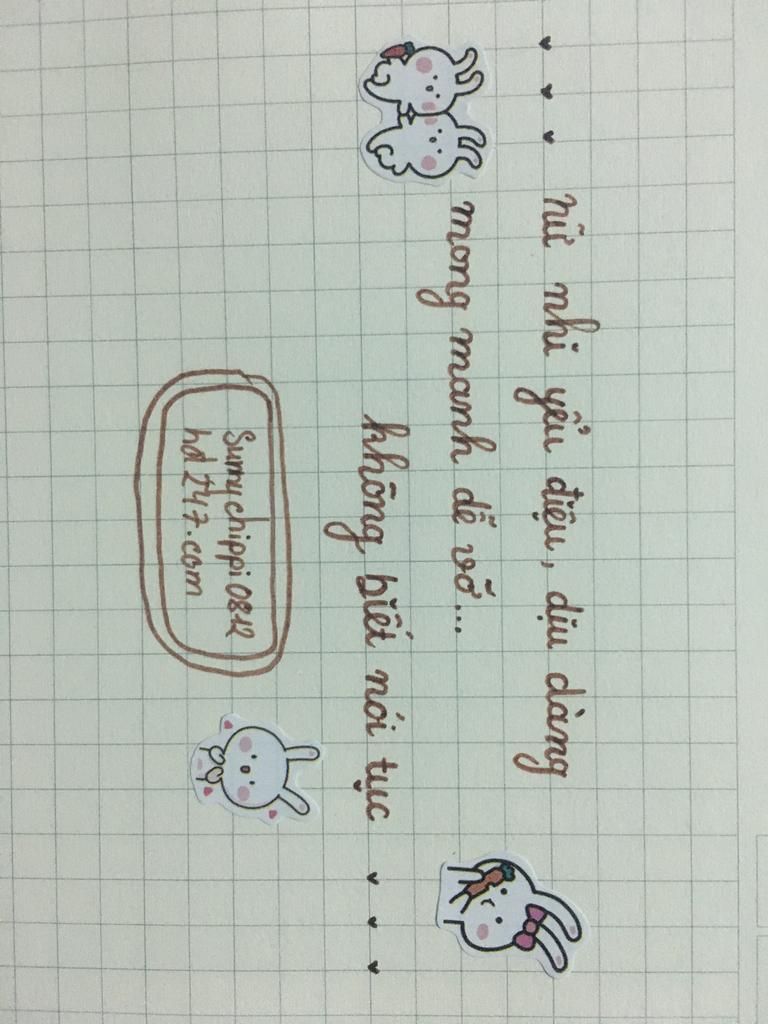 nữ nhi yểu điệu, dịu dàng
mong manh dễ vỡ...
không biết nói tục
Sunnychippi0812
hd247.com